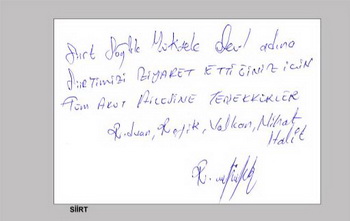 Siirt Sağlık Müdürle adına
Siirtimizi ZİYARET ETTİĞİNİZ İÇİN
TÜM AKUT AİLESİNE TEŞEKKÜRLER
Rıdvan, Ragik, Volkan, Nihat
Halit
SİİRT